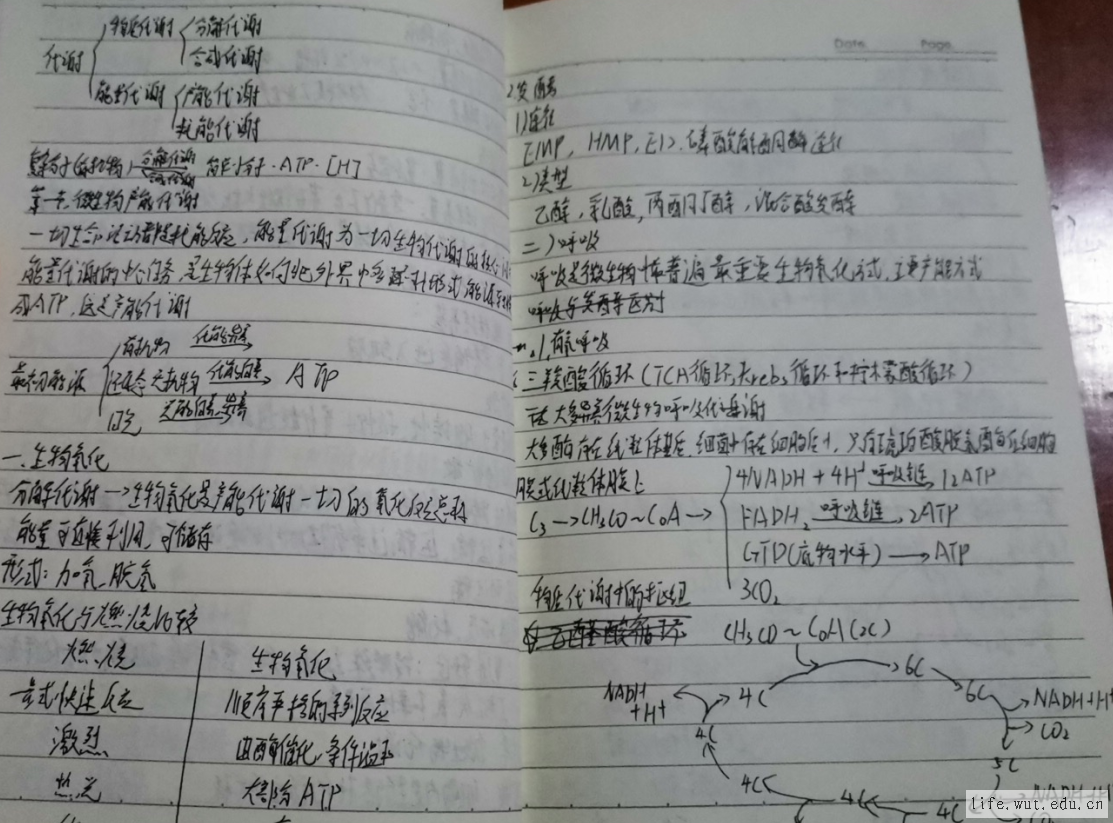 代谢
物质代谢
分解代谢
合成代谢
能量代谢
产能代谢
耗能代谢
分解代谢
合成代谢
简单小分子·ATP·[H]
第一节 微生物产能代谢
一切生命活动都是耗能反应，能量代谢为一切生物代谢的核心
能量代谢的中心任务，是生物体如何把外界中多种形式能源
成ATP，这是产能代谢
最初能源
有机物 化能异养
还原态无机物 化能自养 ATP
日光 光能自养 异养
一、生物氧化
分解代谢→生物氧化是产能代谢一切的氧化反应总称
能量可直接利用，可储存
形式：加氧、脱氢
生物氧化与燃烧比较
燃烧 生物氧化
一步式快速反应 顺序严格的系列反应
激烈 由酶催化，条件温和
热、光 大部分ATP
Date Page
2.发酵
1)途径
EMP, HMP, ED, 磷酸解酮酶途径
2)类型
乙醇，乳酸，丙酮丁醇，混合酸发酵
二)呼吸
呼吸是微生物中普遍最重要生物氧化方式，主要产能方式
呼吸与发酵等区别
1.有氧呼吸
三羧酸循环（TCA循环，Krebs循环和柠檬酸循环）
大多异养微生物呼吸代谢
大多酶存在线粒体基质，细菌中存在细胞质中，只有琥珀酸脱氢酶存在细胞
膜或线粒体膜上
C3→CH3CO~CoA→
4NADH+4H+ 呼吸链 12ATP
FADH2 呼吸链 2ATP
GTP(底物水平)→ATP
3CO2
物质代谢中的枢纽
乙醛酸循环
CH3CO~CoA(2C)
NADH+H+
4C
6C
6C
NADH+H+
CO2
4C
5C
4C
4C
4C
NADH+H
life.wut.edu.cn